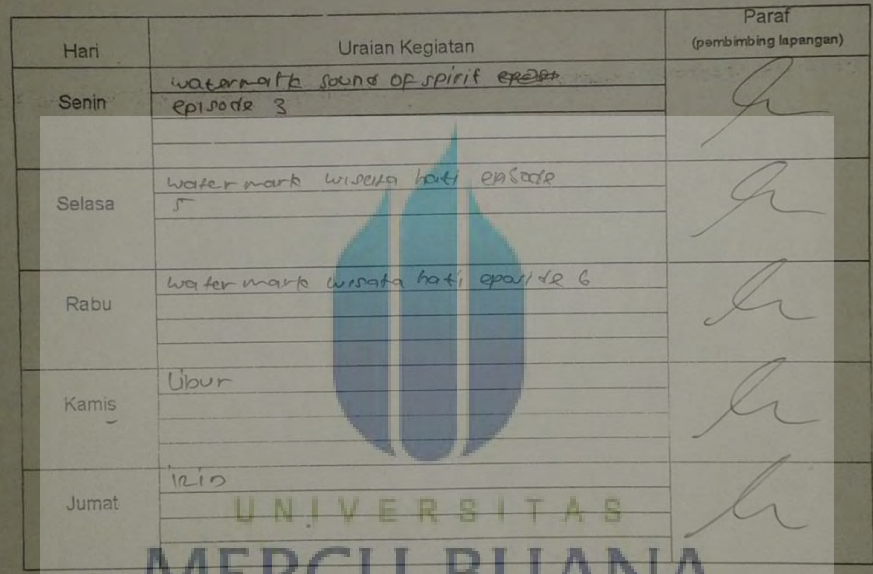 Hari Uraian Kegiatan Paraf
(pembimbing lapangan)
Senin watermark sound of spirit
episode 3
Selasa watermark wisata hati episode
5
Rabu watermark wisata hati eposide 6
Kamis Libur
Jumat izin
UNIVERSITAS
MERCU BUANA